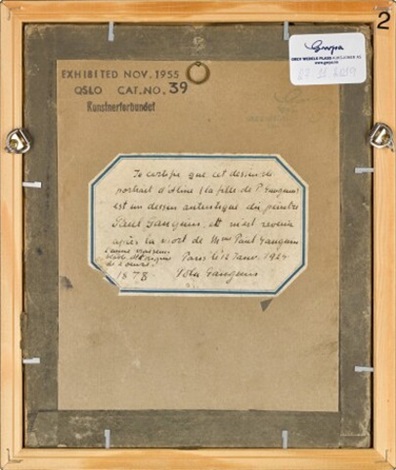 2
Gwpa
GREV WEDELS PLASS AUKSJONER AS
www.gwpa.no
EXHIBITED NOV. 1955
OSLO CAT. NO. 39
Kunstnerforbundet
Je certifie que cet dessin de
portrait d'Aline (la fille de P. Gauguin)
est un dessin autentique du peintre
Paul Gauguin, et m'est revenu
après la mort de Mme Paul Gauguin
Paris le 12 Janv. 1924
1878 Pola Gauguin